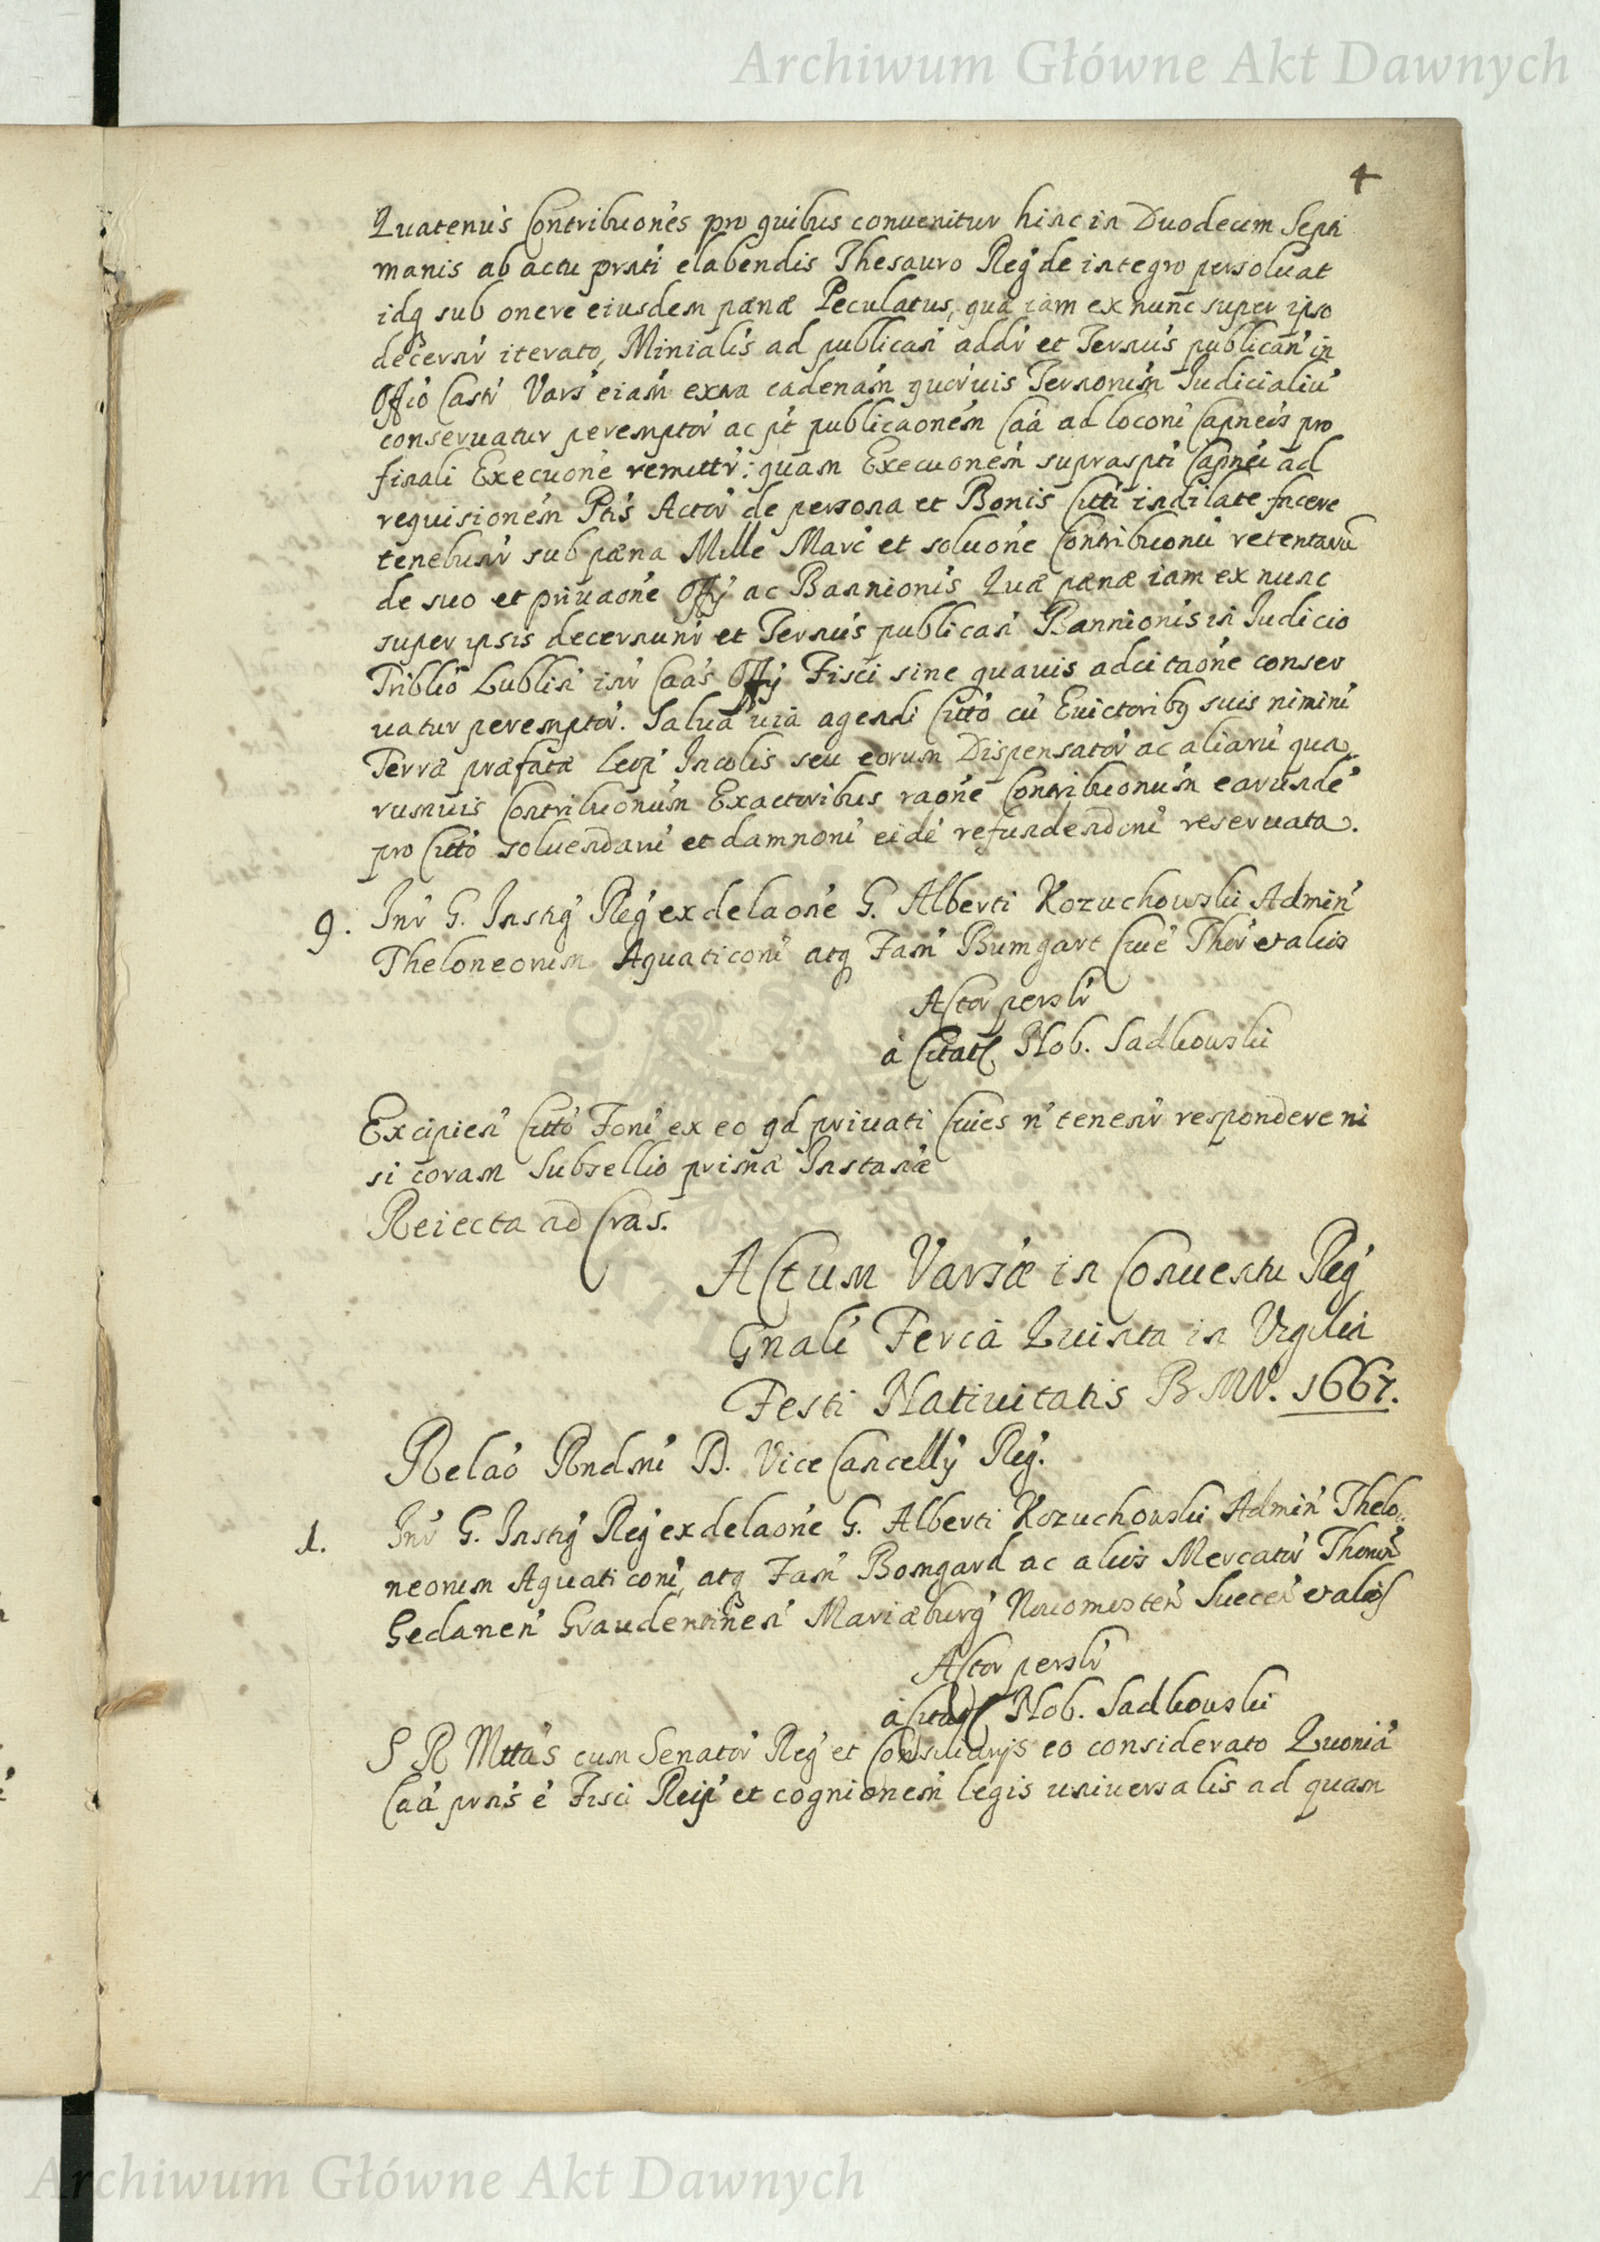 Archiwum Główne Akt Dawnych
4
Quatenus Contribuones pro quibus convenitur hinc in Duodecim Septi
manis ab actu prnti elabendis Thesauro Reg de integro persoluat
idq sub onere eiusdem pænæ Peculatus, qua iam ex nunc super ipso
decernr iterato, Minialis ad publican addr et Ternus publican in
Offio Castr Vars eiam extra cadenam quorvis Ternorum Judicialiu
conservatur peremptor ac pt publicaonem Caa ad locorū Capneos pro
finali Execuone remittr: quam Execuonem supraspti Capnei ad
requisionem Ptis Actor de persona et Bonis Citti indilate facere
tenebunr sub pæna Mille Marc et soluone Contribuonū retentarū
de suo et privaone Offy ac Bannionis Quæ pænæ iam ex nunc
super ipsis decernunr et Ternus publican Bannionis in Judicio
Triblio Lublin inr Caas Offy Fisci sine quavis adcitaone conser
vatur peremptor. Salva via agendi Citto cū Evictoribq suis nimirū
Terræ præfatæ Leop Incolis seu eorum Dispensator ac aliarū qua
rumvis Contribuonum Exactoribus raone Contribuonum earundē
pro Citto soluendarū et damnorū eidē refundendorū reservata.
9. Inr G. Instig Reg ex delaone G. Alberti Kozuchowski Admin
Theloneorum Aquaticorū atq Fam Bumgart Cive Thor et aliis
Actor perslr
à Citat Nob. Sadkowski
Excipien Citto Forū ex eo qd privati Cives n tenenr respondere ni
si coram Subsellio primæ Instanæ
Reiecta ad Cras.
Actum Varsæ in Conventu Reg
Gnali Feria Quinta in Vigilia
Festi Nativitatis B M V. 1667.
Relao Rndmi D. Vice Cancellÿ Reg.
1. Inr G. Instig Reg ex delaone G. Alberti Kozuchowski Admin Thelo
neorum Aquaticorū, atq Fam Bomgard ac aliis Mercator Thorun
Gedanen Graudentinen Mariæburg Novomisten Suecen et aliis
Actor perslr
à Citat Nob. Sadkowski
S R Mttas cum Senator Reg et Consiliarijs eo considerato Quoniā
Caa prns é Fisci Reip et cognionem legis universalis ad quam
Archiwum Główne Akt Dawnych